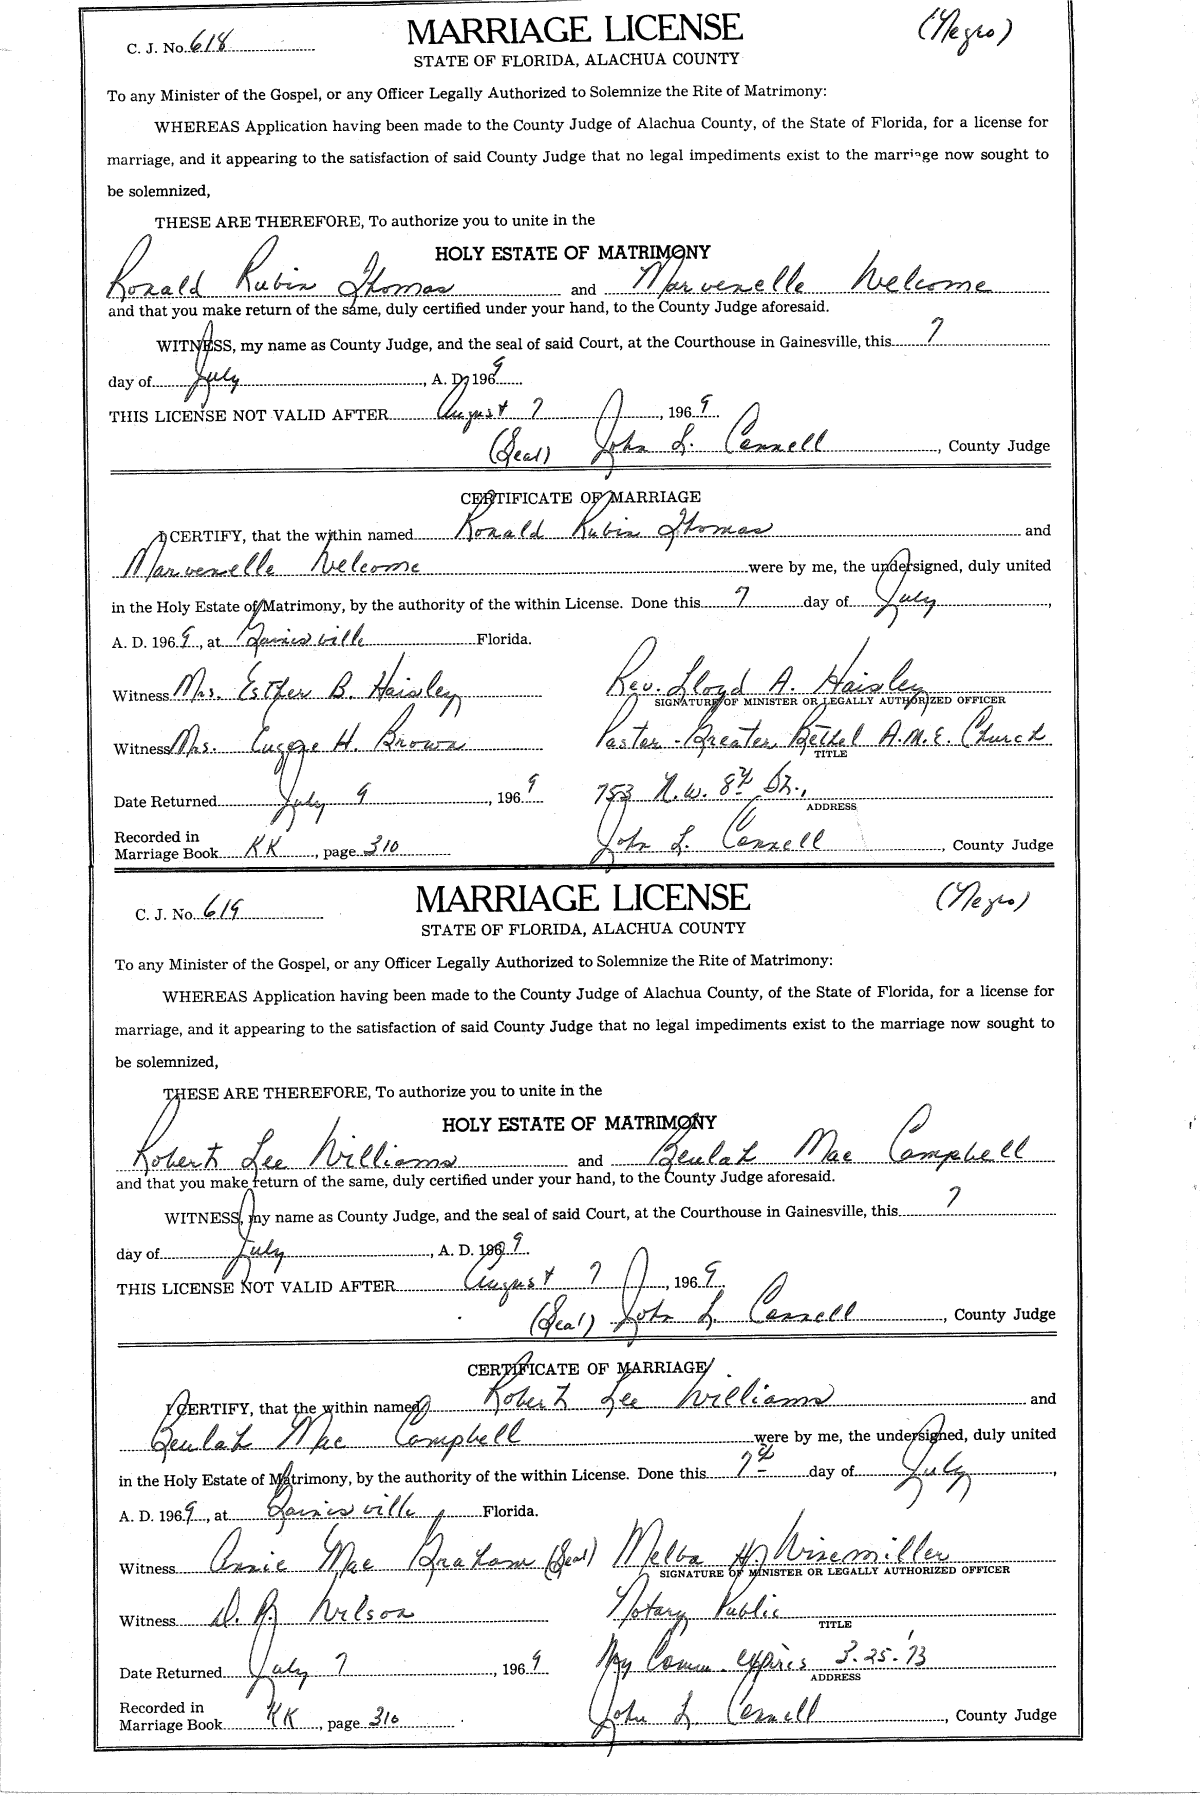 C. J. No. 618
MARRIAGE LICENSE
(Negro)
STATE OF FLORIDA, ALACHUA COUNTY
To any Minister of the Gospel, or any Officer Legally Authorized to Solemnize the Rite of Matrimony:
WHEREAS Application having been made to the County Judge of Alachua County, of the State of Florida, for a license for
marriage, and it appearing to the satisfaction of said County Judge that no legal impediments exist to the marriage now sought to
be solemnized,
THESE ARE THEREFORE, To authorize you to unite in the
HOLY ESTATE OF MATRIMONY
Ronald Rubin Thomas and Marvenelle Welcome
and that you make return of the same, duly certified under your hand, to the County Judge aforesaid.
WITNESS, my name as County Judge, and the seal of said Court, at the Courthouse in Gainesville, this 7
day of July, A. D. 1969
THIS LICENSE NOT VALID AFTER August 7, 1969
(Seal) John L. Connell, County Judge
CERTIFICATE OF MARRIAGE
I CERTIFY, that the within named Ronald Rubin Thomas and
Marvenelle Welcome were by me, the undersigned, duly united
in the Holy Estate of Matrimony, by the authority of the within License. Done this 7 day of July,
A. D. 1969, at Gainesville Florida.
Witness Mrs. Esther B. Haisley Rev. Lloyd A. Haisley
SIGNATURE OF MINISTER OR LEGALLY AUTHORIZED OFFICER
Witness Mrs. Eugene H. Brown Pastor - Greater Bethel A.M.E. Church
TITLE
Date Returned July 9, 1969 753 N.W. 8th St.,
ADDRESS
Recorded in
Marriage Book KK, page 310 John L. Connell, County Judge
C. J. No. 619
MARRIAGE LICENSE
(Negro)
STATE OF FLORIDA, ALACHUA COUNTY
To any Minister of the Gospel, or any Officer Legally Authorized to Solemnize the Rite of Matrimony:
WHEREAS Application having been made to the County Judge of Alachua County, of the State of Florida, for a license for
marriage, and it appearing to the satisfaction of said County Judge that no legal impediments exist to the marriage now sought to
be solemnized,
THESE ARE THEREFORE, To authorize you to unite in the
HOLY ESTATE OF MATRIMONY
Robert Lee Williams and Beulah Mae Campbell
and that you make return of the same, duly certified under your hand, to the County Judge aforesaid.
WITNESS, my name as County Judge, and the seal of said Court, at the Courthouse in Gainesville, this 7
day of July, A. D. 1969.
THIS LICENSE NOT VALID AFTER August 7, 1969
(Seal) John L. Connell, County Judge
CERTIFICATE OF MARRIAGE
I CERTIFY, that the within named Robert Lee Williams and
Beulah Mae Campbell were by me, the undersigned, duly united
in the Holy Estate of Matrimony, by the authority of the within License. Done this 7th day of July,
A. D. 1969, at Gainesville Florida.
Witness Annie Mae Graham (Seal) Melba H. Winemiller
SIGNATURE OF MINISTER OR LEGALLY AUTHORIZED OFFICER
Witness D. R. Wilson Notary Public
TITLE
Date Returned July 7, 1969 My Comm. expires 3-25-'73
ADDRESS
Recorded in
Marriage Book KK, page 310 John L. Connell, County Judge